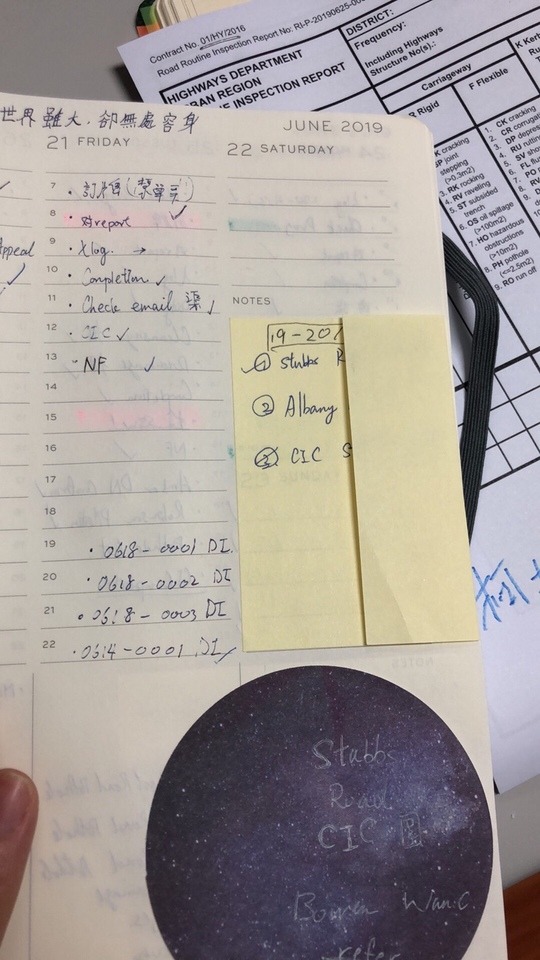 Contract No. 01/HY/2016
Road Routine Inspection Report No: RI-P-20190625-00
HIGHWAYS DEPARTMENT
BAN REGION
E INSPECTION REPORT
DISTRICT:
Frequency:
Including Highways
Structure No(s).:
Carriageway
R Rigid
F Flexible
K Kerb
CK cracking
joint
stepping
(>0.3m2)
3. RK rocking
4. RV raveling
5. ST subsided
trench
6. OS oil spillage
(>100m2)
7. HO hazardous
obstructions
(>10m2)
8. PH pothole
(<=2.5m2)
9. RO run off
1. CK cracking
2. CR corrugat
3. DP depres
4. RU rutting
世界雖大,卻無處容身
JUNE 2019
21 FRIDAY
22 SATURDAY
7
8 report
9 log →
10 Completion ✓
11 Check email 渠 ✓
12 CIC ✓
13 NF ✓
14
15
16
17
18
19 0618-0001 DI
20 0618-0002 DI
21 0618-0003 DI
22 0614-0001 DI ✓
Appeal
NOTES
19-20
✓ ① Stubbs R
② Albany
③ CIC S
Stubbs
Road
CIC 圖
Bowen Wan C.
refer